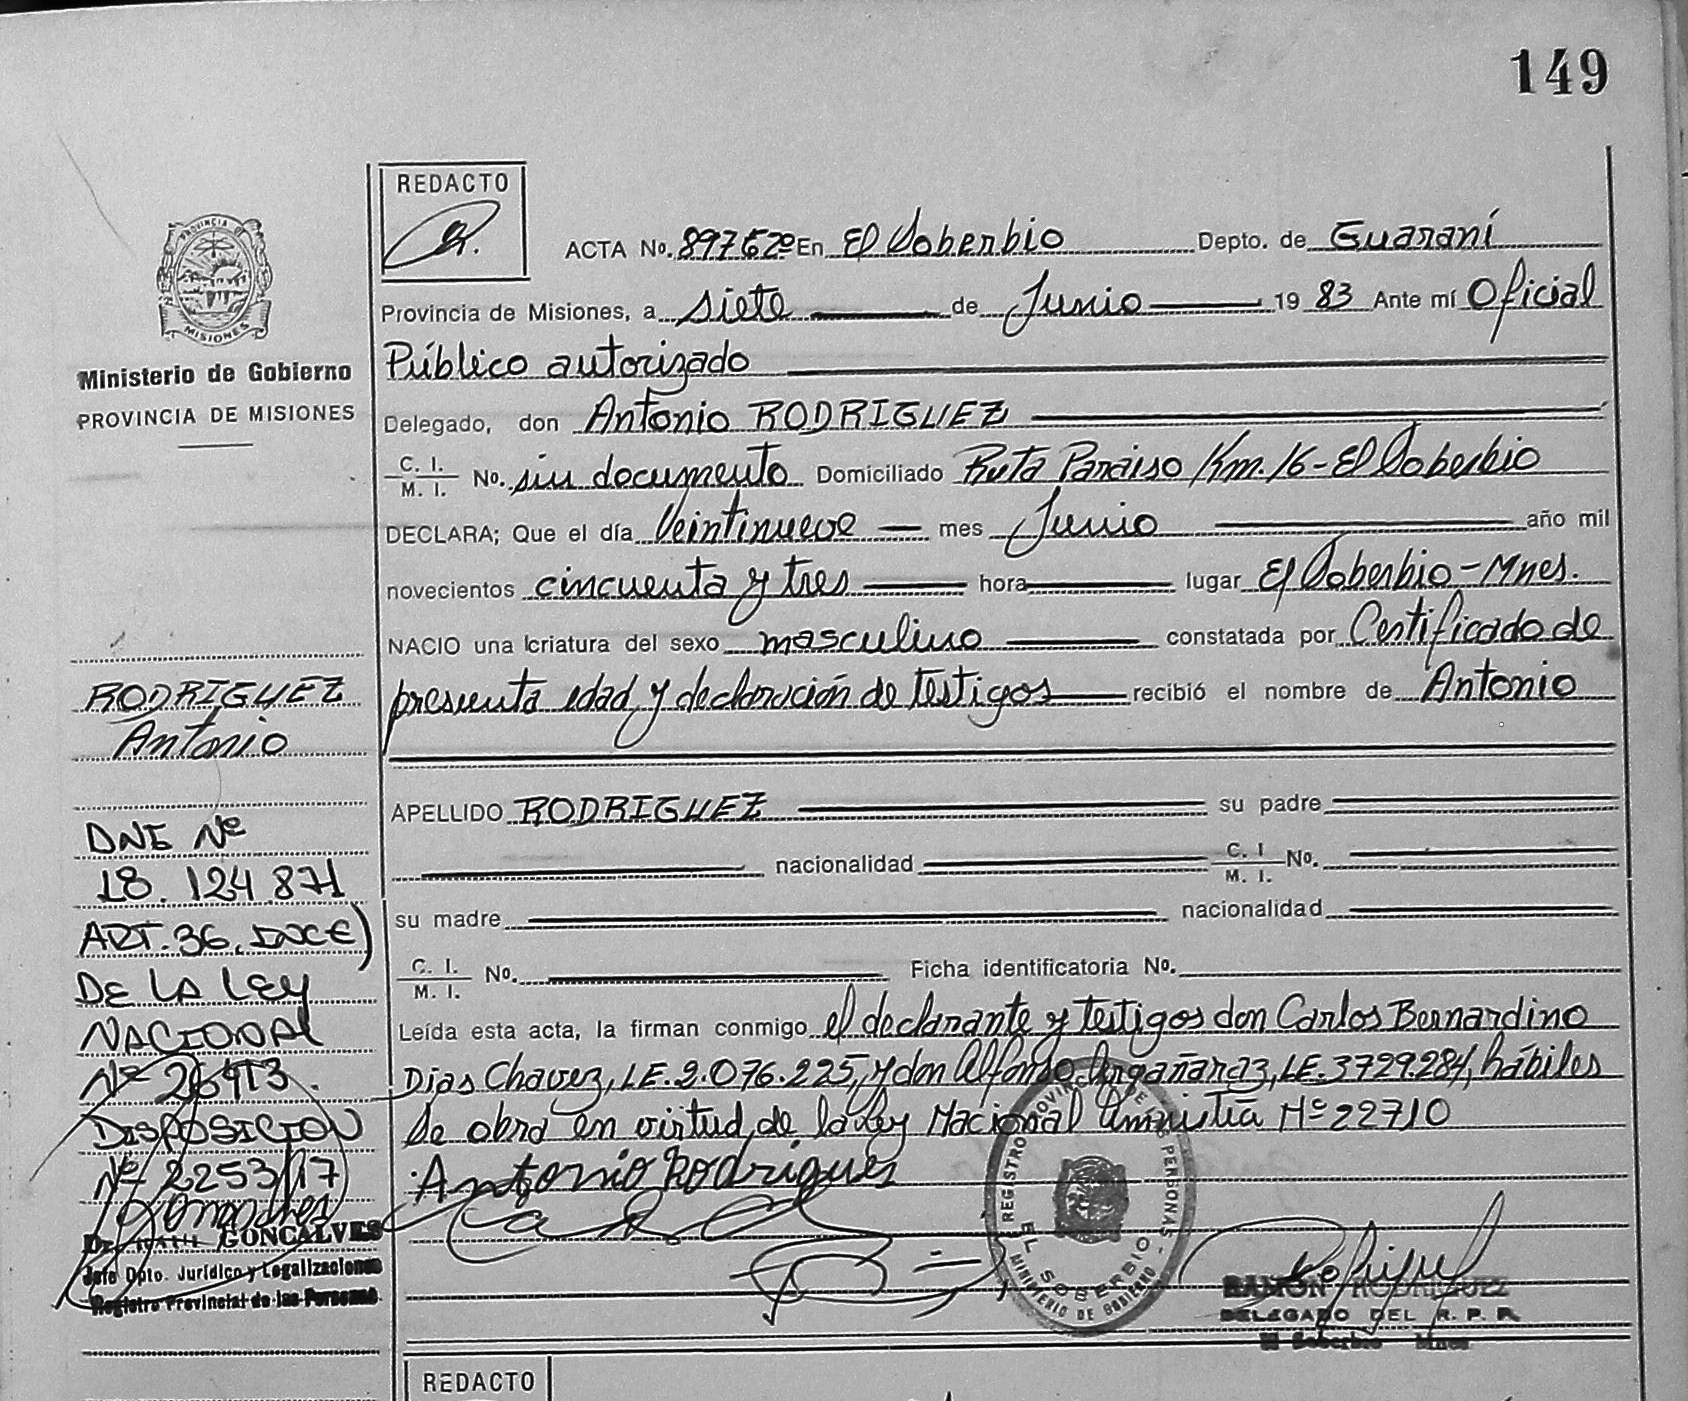 149
REDACTO
ACTA No. 8975 2º En El Soberbio Depto. de Guaraní
Provincia de Misiones, a siete de Junio 19 83 Ante mí Oficial
Público autorizado
Delegado, don Antonio RODRIGUEZ
C. I. M. I. No. sin documento Domiciliado Ruta Paraiso Km. 16 - El Soberbio
DECLARA; Que el día Veintinueve mes Junio año mil
novecientos cincuenta y tres hora lugar El Soberbio - Mnes.
NACIO una criatura del sexo masculino constatada por Certificado de
presunta edad y declaración de testigos recibió el nombre de Antonio
APELLIDO RODRIGUEZ su padre
nacionalidad C. I M. I. No.
su madre nacionalidad
C. I. M. I. No. Ficha identificatoria No.
Leída esta acta, la firman conmigo el declarante y testigos don Carlos Bernardino
Dias Chavez, L.E. 2.076.225, y don Alfonso Argañaraz, L.E. 3729.284, hábiles
Se obra en virtud de la Ley Nacional Amnistía Nº 22710
Antonio Rodrigues
REGISTRO PROVINCIAL DE PERSONAS
EL SOBERBIO
MINISTERIO DE GOBIERNO
RAMÓN RODRIGUEZ
DELEGADO DEL R. P. P.
El Soberbio Mnes
REDACTO
PROVINCIA DE
MISIONES
Ministerio de Gobierno
PROVINCIA DE MISIONES
RODRIGUEZ
Antonio
DNI Nº
18.124.871
ART. 36, INC E)
DE LA LEY
NACIONAL
Nº 26413.
DISPOSICION
Nº 2253/17
GONCALVES
Jefe Dpto. Jurídico y Legalizaciones
Registro Provincial de las Personas